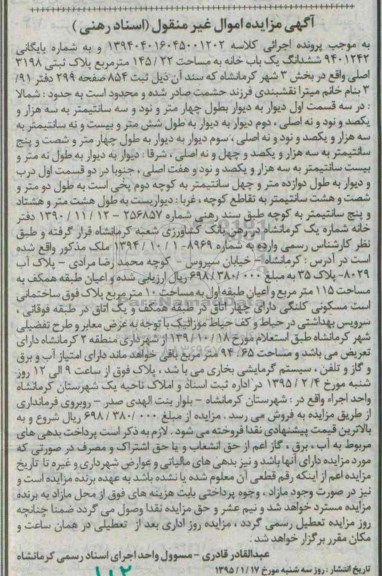 آگهی مزایده اموال غیر منقول (اسناد رهنی)
به موجب پرونده اجرائی کلاسه ۱۳۹۴۰۴۰۱۶۰۴۵۰۰۱۲۰۲ و به شماره بایگانی
۹۴۰۱۲۴۲ ششدانگ یک باب خانه به مساحت ۱۴۵/۲۲ مترمربع پلاک ثبتی ۳۱۹۸
اصلی واقع در بخش ۳ شهر کرمانشاه که سند آن ذیل ثبت ۸۵۴ صفحه ۲۹۹ دفتر ۹۱/
۳ بنام خانم میترا نقشبندی فرزند حشمت صادر شده و محدود است به حدود: شمالا
: در سه قسمت اول دیوار به دیوار بطول چهار متر و نود و سه سانتیمتر به سه هزار و
یکصد و نود و نه اصلی ، دوم دیوار به دیوار به طول شش متر و بیست و نه سانتیمتر به
سه هزار و یکصد و نود و نه اصلی ، سوم دیوار به دیوار به طول چهار متر و شصت و پنج
سانتیمتر به سه هزار و یکصد و چهل و نه اصلی ، شرقا: دیوار به دیوار به طول نه متر و
بیست سانتیمتر به سه هزار و یکصد و نود و هفت اصلی ، جنوبا: در دو قسمت اول درب
و دیوار به طول دوازده متر و چهل سانتیمتر به کوچه دوم پخی است به طول دو متر و
شصت و هشت سانتیمتر به تقاطع کوچه ، غربا: دیواریست به طول هشت متر و هشتاد
و پنج سانتیمتر به کوچه طبق سند رهنی شماره ۲۵۶۸۵۷ - ۱۳۹۰/۱۱/۱۲ دفتر
خانه شماره یک کرمانشاه در رهن بانک کشاورزی شعبه کرمانشاه قرار گرفته و طبق
نظر کارشناس رسمی وارده به شماره ۸۹۶۹-۱۳۹۴/۱۰/۱ ملک مذکور واقع شده
است در آدرس : کرمانشاه – خیابان سیروس – کوچه محمد رضا مرادی – پلاک آب
۸۰۲۹- پلاک ۳۵ به مبلغ ۶۹۸/۳۸۰/۰۰۰ ریال ارزیابی شده و اعیان طبقه همکف به
مساحت ۱۱۵ متر مربع و اعیان طبقه اول به مساحت ۱۰ متر مربع پلاک فوق ساختمانی
است مسکونی کلنگی دارای چهار اتاق در طبقه همکف و یک اتاق در طبقه فوقانی ،
سرویس بهداشتی در حیاط و کف حیاط موزائیک با توجه به عرض معابر و طرح تفضیلی
شهر کرمانشاه طبق استعلام مورخ ۱۳۹/۱۰/۱۸ از شهرداری منطقه ۲ کرمانشاه دارای
تعریض می باشد و مساحت ۹۴/۶۵ متر مربع باقی خواهد ماند دارای امتیاز آب و برق
و گاز و تلفن ، سیستم گرمایشی بخاری می با شد ، پلاک فوق از ساعت ۹ الی ۱۲ روز
شنبه مورخ ۱۳۹۵/۲/۴ در اداره ثبت اسناد و املاک ناحیه یک شهرستان کرمانشاه
واحد اجراء واقع در : شهرستان کرمانشاه – بلوار بنت الهدی صدر – روبروی فرمانداری
از طریق مزایده به فروش می رسد . مزایده از مبلغ ۶۹۸/۳۸۰/۰۰۰ ریال شروع و به
بالاترین قیمت پیشنهادی نقدا فروخته می شود . لازم به ذکر است پرداخت بدهی های
مربوط به آب ، برق ، گاز اعم از حق انشعاب و یا حق اشتراک و مصرف در صورتی که
مورد مزایده دارای آنها باشد و نیز بدهی های مالیاتی و عوارض شهرداری و غیره تا تاریخ
مزایده اعم از اینکه رقم قطعی آن معلوم شده یا نشده باشد به عهده برنده مزایده است و
نیز در صورت وجود مازاد ، وجوه پرداختی بابت هزینه های فوق از محل مازاد به برنده
مزایده مسترد خواهد شد و نیم عشر و حق مزایده نقدا وصول می گردد ضمنا چنانچه
روز مزایده تعطیل رسمی گردد ، مزایده روز اداری بعد از تعطیلی در همان ساعت و
مکان مقرر برگزار خواهد شد.
عبدالقادر قادری – مسوول واحد اجرای اسناد رسمی کرمانشاه
تاریخ انتشار : روز سه شنبه مورخ ۱۳۹۵/۱/۱۷
۱۱۲